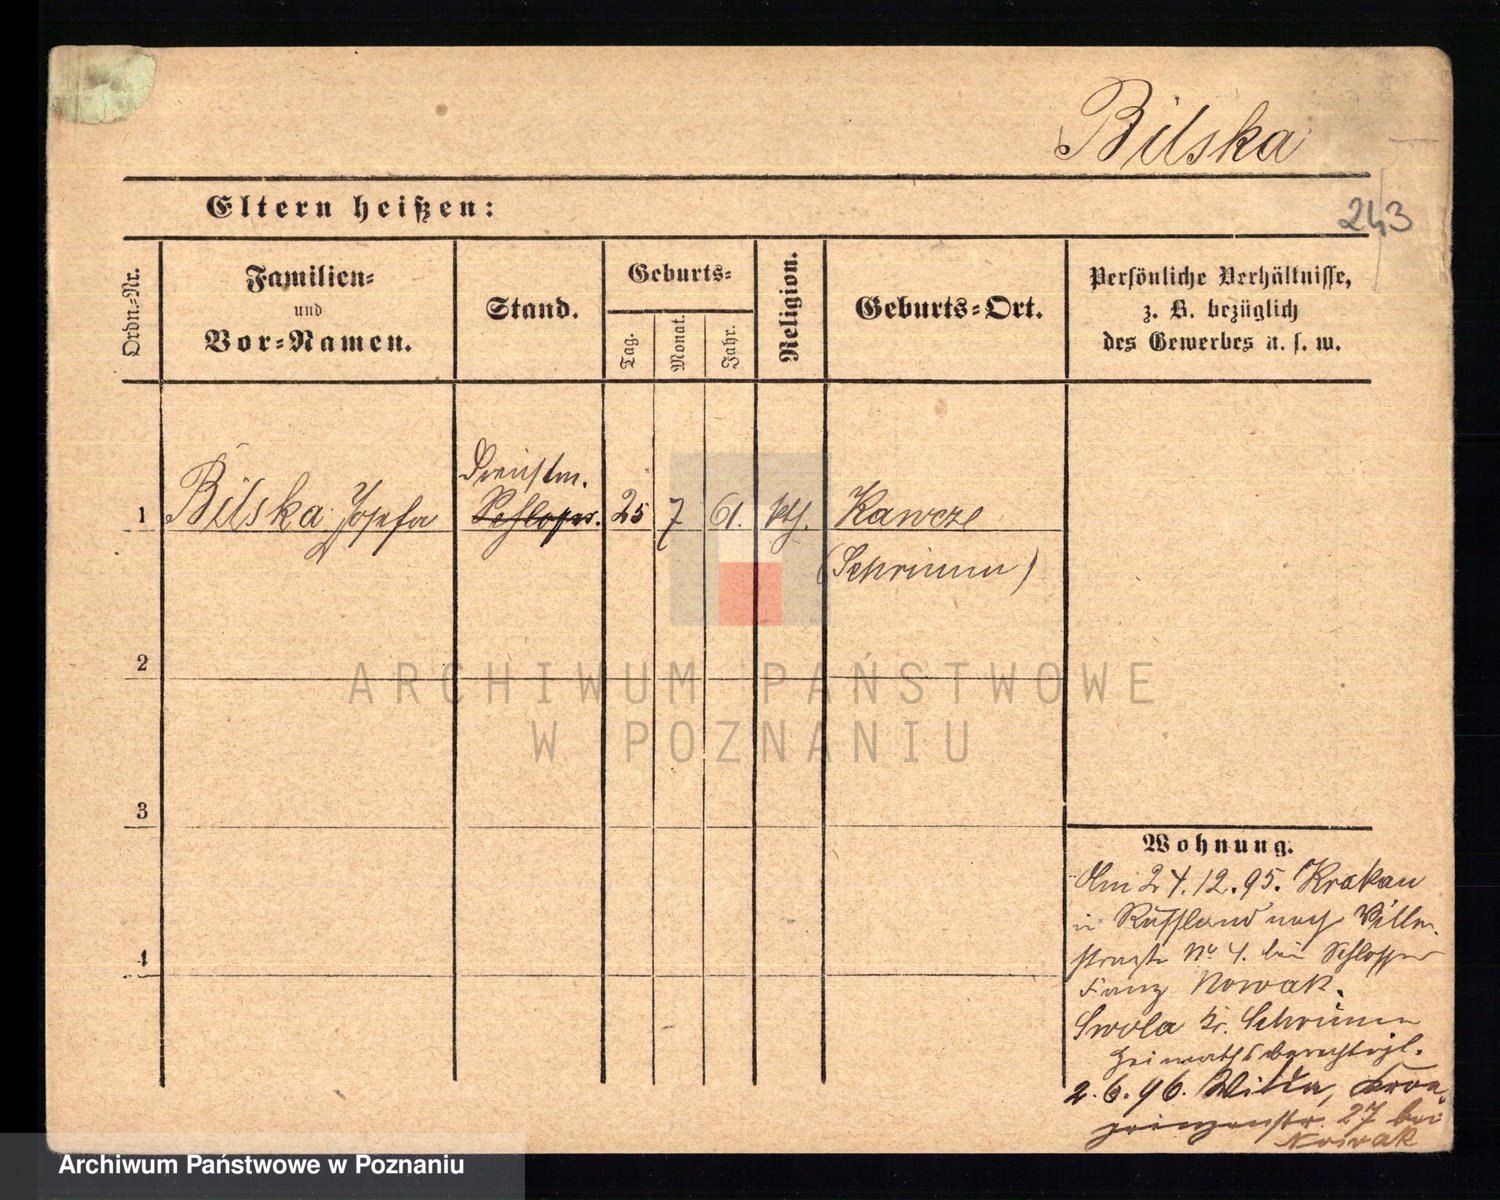 Bilska
Eltern heißen:
243
Ordn.-Nr.
Familien-
und
Vor-Namen.
Stand.
Geburts-
Tag.
Monat.
Jahr.
Religion.
Geburts-Ort.
Persönliche Verhältnisse,
z. B. bezüglich
des Gewerbes u. s. w.
Dienstm.
1 Bilska Josefa Schlosser. 25 7 61. kth. Kawcze
(Schrimm)
2
3
4
Wohnung.
Am 24.12.95. Krakau
in Russland nach Villen-
straße No 4. bei Schlosser
Franz Nowak.
Kr. Schrimm
heimathsberechtigt.
2.6.96. Wilda, Kron-
prinzenstr. 27 bei
Nowak
ARCHIWUM PAŃSTWOWE
W POZNANIU
Archiwum Państwowe w Poznaniu